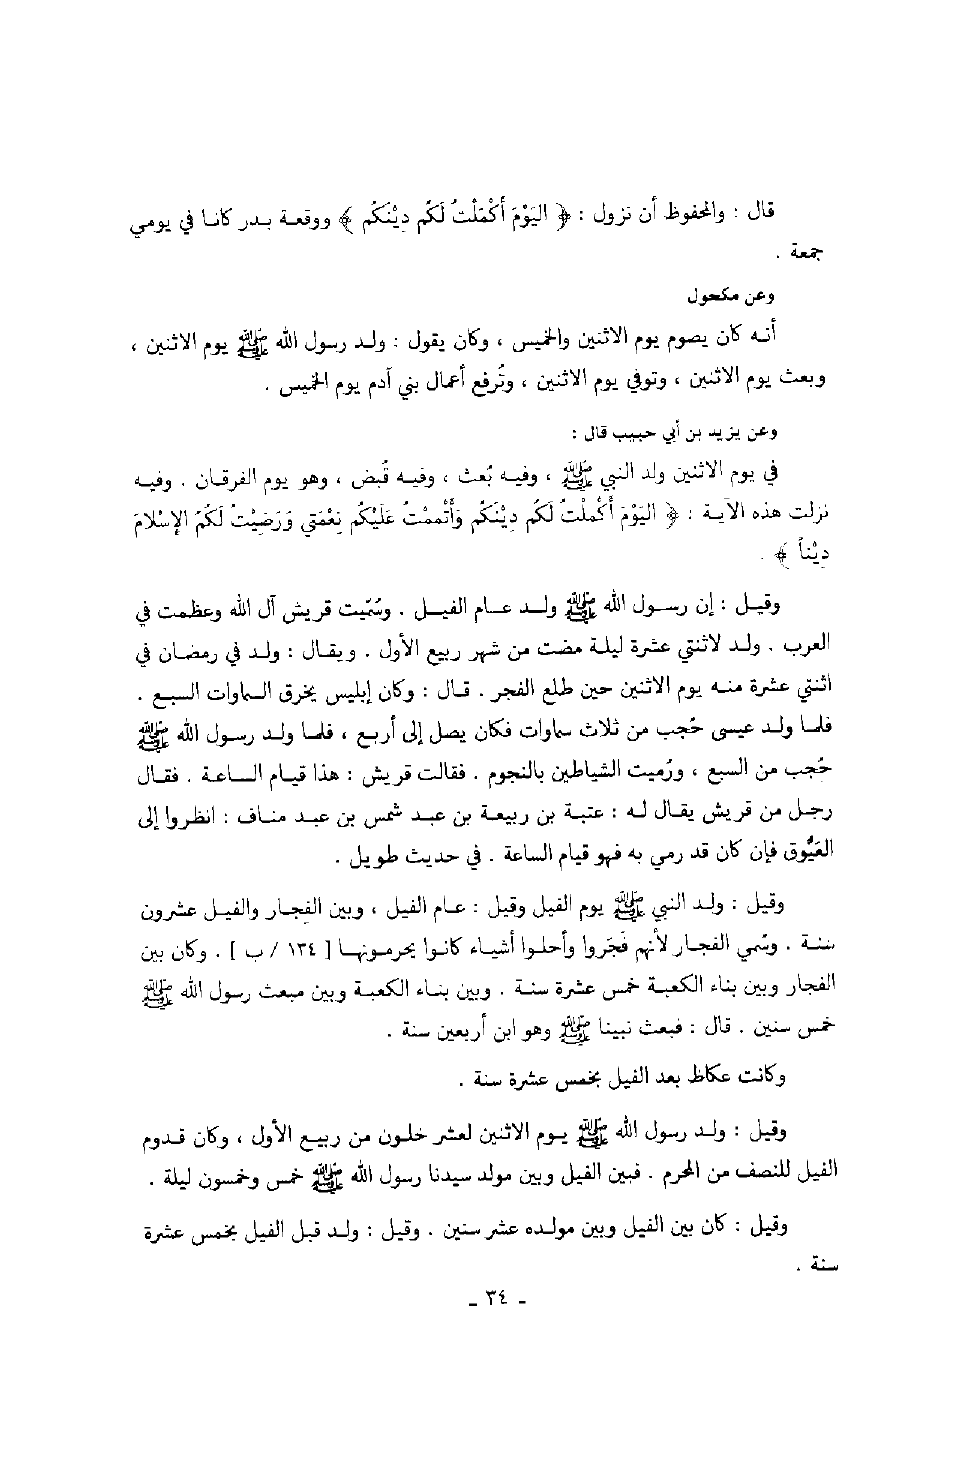 قال : والمحفوظ أن نزول : ﴿ اليَوْمَ أَكْمَلْتُ لَكُم دِيْنَكُم ﴾ ووقعة بدر كانا في يومي
جمعة .
وعن مكحول
أنه كان يصوم يوم الاثنين والخميس ، وكان يقول : ولد رسول الله ﷺ يوم الاثنين ،
وبعث يوم الاثنين ، وتوفي يوم الاثنين ، وتُرفع أعمال بني آدم يوم الخميس .
وعن يزيد بن أبي حبيب قال :
في يوم الاثنين ولد النبي ﷺ ، وفيه بُعث ، وفيه قُبض ، وهو يوم الفرقان . وفيه
نزلت هذه الآية : ﴿ اليَوْمَ أَكْمَلْتُ لَكُم دِيْنَكُم وَأَتْمَمْتُ عَلَيْكُم نِعْمَتِي وَرَضِيْتُ لَكُمُ الإِسْلامَ
دِيْناً ﴾ .
وقيل : إن رسول الله ﷺ ولد عام الفيل . وسُمّيت قريش آل الله وعظمت في
العرب . ولد لاثنتي عشرة ليلة مضت من شهر ربيع الأول . ويقال : ولد في رمضان في
اثنتي عشرة منه يوم الاثنين حين طلع الفجر . قال : وكان إبليس يخرق السماوات السبع .
فلما ولد عيسى حُجب من ثلاث سماوات فكان يصل إلى أربع ، فلما ولد رسول الله ﷺ
حُجب من السبع ، ورُميت الشياطين بالنجوم . فقالت قريش : هذا قيام الساعة . فقال
رجل من قريش يقال له : عتبة بن ربيعة بن عبد شمس بن عبد مناف : انظروا إلى
العَيُّوق فإن كان قد رمي به فهو قيام الساعة . في حديث طويل .
وقيل : ولد النبي ﷺ يوم الفيل وقيل : عام الفيل ، وبين الفجار والفيل عشرون
سنة . وسُمي الفجار لأنهم فَجَروا وأحلوا أشياء كانوا يحرمونها [ ١٣٤ / ب ] . وكان بين
الفجار وبين بناء الكعبة خمس عشرة سنة . وبين بناء الكعبة وبين مبعث رسول الله ﷺ
خمس سنين . قال : فبعث نبينا ﷺ وهو ابن أربعين سنة .
وكانت عكاظ بعد الفيل بخمس عشرة سنة .
وقيل : ولد رسول الله ﷺ يوم الاثنين لعشر خلون من ربيع الأول ، وكان قدوم
الفيل للنصف من المحرم . فبين الفيل وبين مولد سيدنا رسول الله ﷺ خمس وخمسون ليلة .
وقيل : كان بين الفيل وبين مولده عشر سنين . وقيل : ولد قبل الفيل بخمس عشرة
سنة .
- ٣٤ -